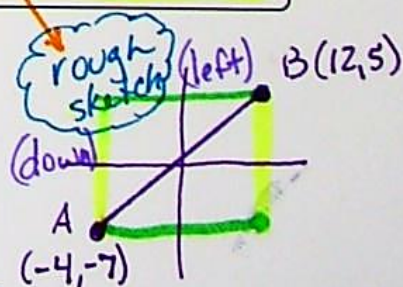 rough
sketch
(left)
B (12,5)
(down)
A
(-4,-7)